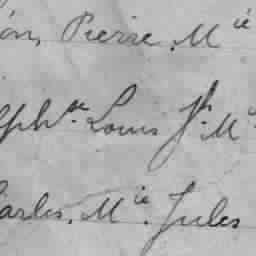 on, Pierre, Mie
lphse Louis Jh. M
arles, Mie. Jules